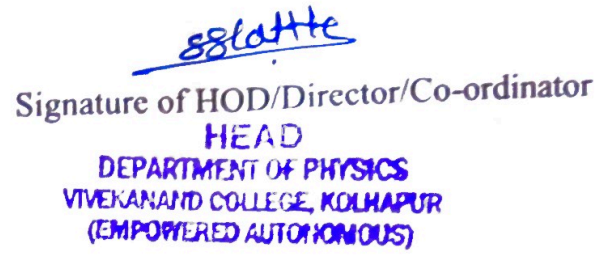 Signature of HOD/Director/Co-ordinator
HEAD
DEPARTMENT OF PHYSICS
VIVEKANAND COLLEGE, KOLHAPUR
(EMPOWERED AUTONOMOUS)